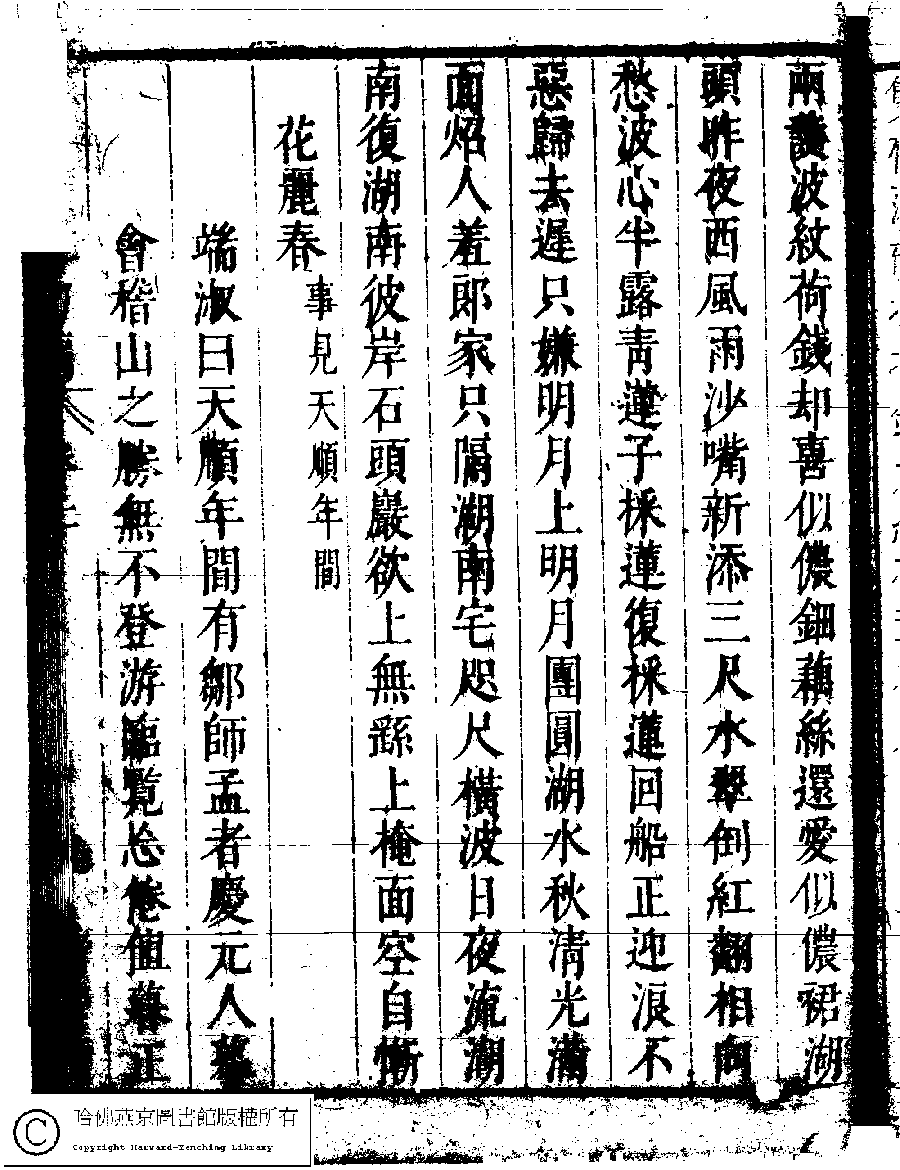 兩護波紋荷錢却喜似儂鈿藕絲還愛似儂裙湖
頭昨夜西風雨沙嘴新添三尺水翠倒紅翻相向
愁波心半露青蓮子採蓮復採蓮回船正迎浪不
惡歸去遲只嫌明月上明月團圓湖水秋清光滿
面炤人羞郎家只隔湖南宅咫尺橫波日夜流湖
南復湖南彼岸石頭巖欲上無繇上掩面空自慚
花麗春 事見天順年間
端淑曰天順年間有鄒師孟者慶元人慕
會稽山之勝無不登游臨覧忘倦值暮正
哈佛燕京圖書館版權所有
Copyright Harvard-Yenching Library